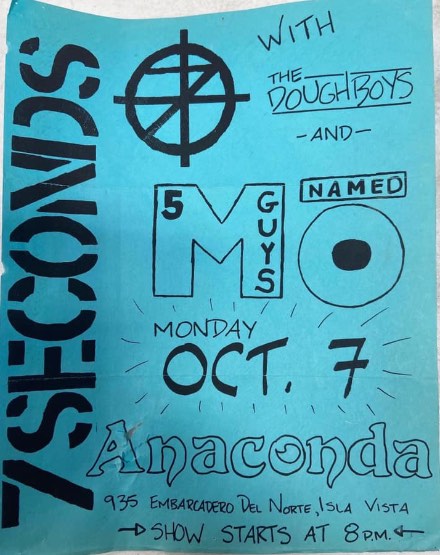 7SECONDS
WITH
THE
DOUGHBOYS
-AND-
5 GUYS
NAMED
MO
MONDAY
OCT. 7
Anaconda
935 EMBARCADERO DEL NORTE, ISLA VISTA
→SHOW STARTS AT 8 P.M.←